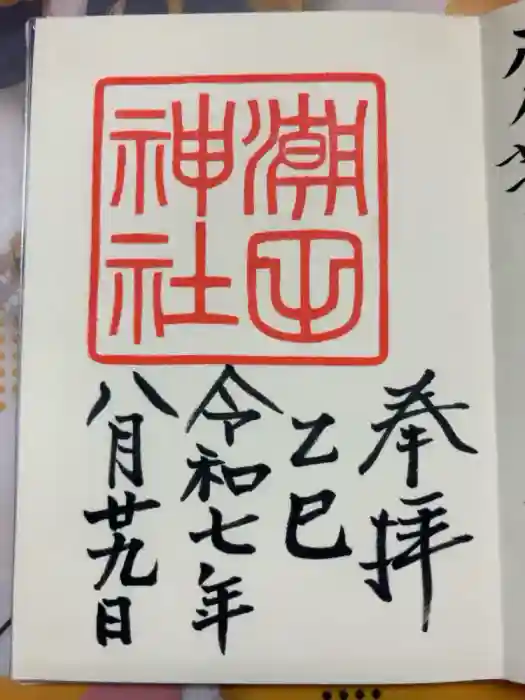 潮田
神社
奉拝
乙巳
令和七年
八月廿九日